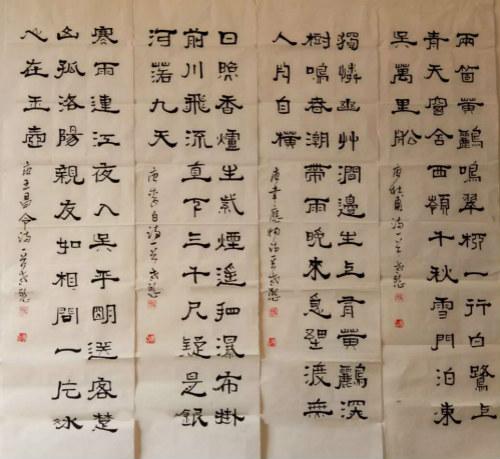 兩箇黃鸝鳴翠柳一行白鷺上
青天窗含西嶺千秋雪門泊東
吳萬里船 唐杜甫詩一首
獨憐幽艸澗邊生上有黃鸝深
樹鳴春潮帶雨晚來急壄渡無
人舟自橫 唐韋應物詩一首
日照香爐生紫煙遙把瀑布掛
前川飛流直下三千尺疑是銀
河落九天 唐李白詩一首
寒雨連江夜入吳平明送客楚
山孤洛陽親友如相問一片冰
心在玉壺 唐王昌令詩一首